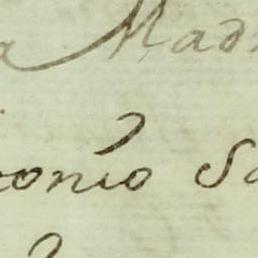 a Mad
onio Sa